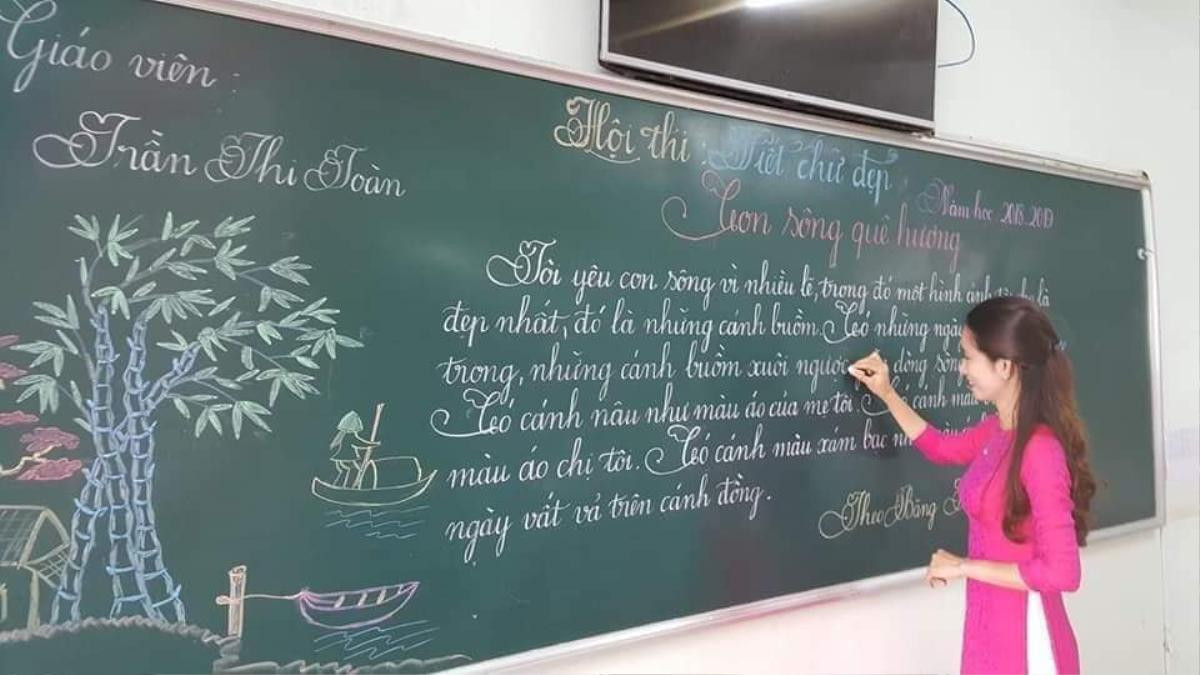 Giáo viên :
Trần Thi Toàn
Hội thi : Viết chữ đẹp
Năm học 2018.2019
Con sông quê hương
Tôi yêu con sông vì nhiều lẽ, trong đó một hình ảnh là
đẹp nhất, đó là những cánh buồm. Có những
trong, những cánh buồm xuôi ngược dòng sông
Có cánh nâu như màu áo của mẹ tôi. Có cánh màu
màu áo chị tôi. Có cánh màu xám bạc
ngày vất vả trên cánh đồng.
Theo Băng